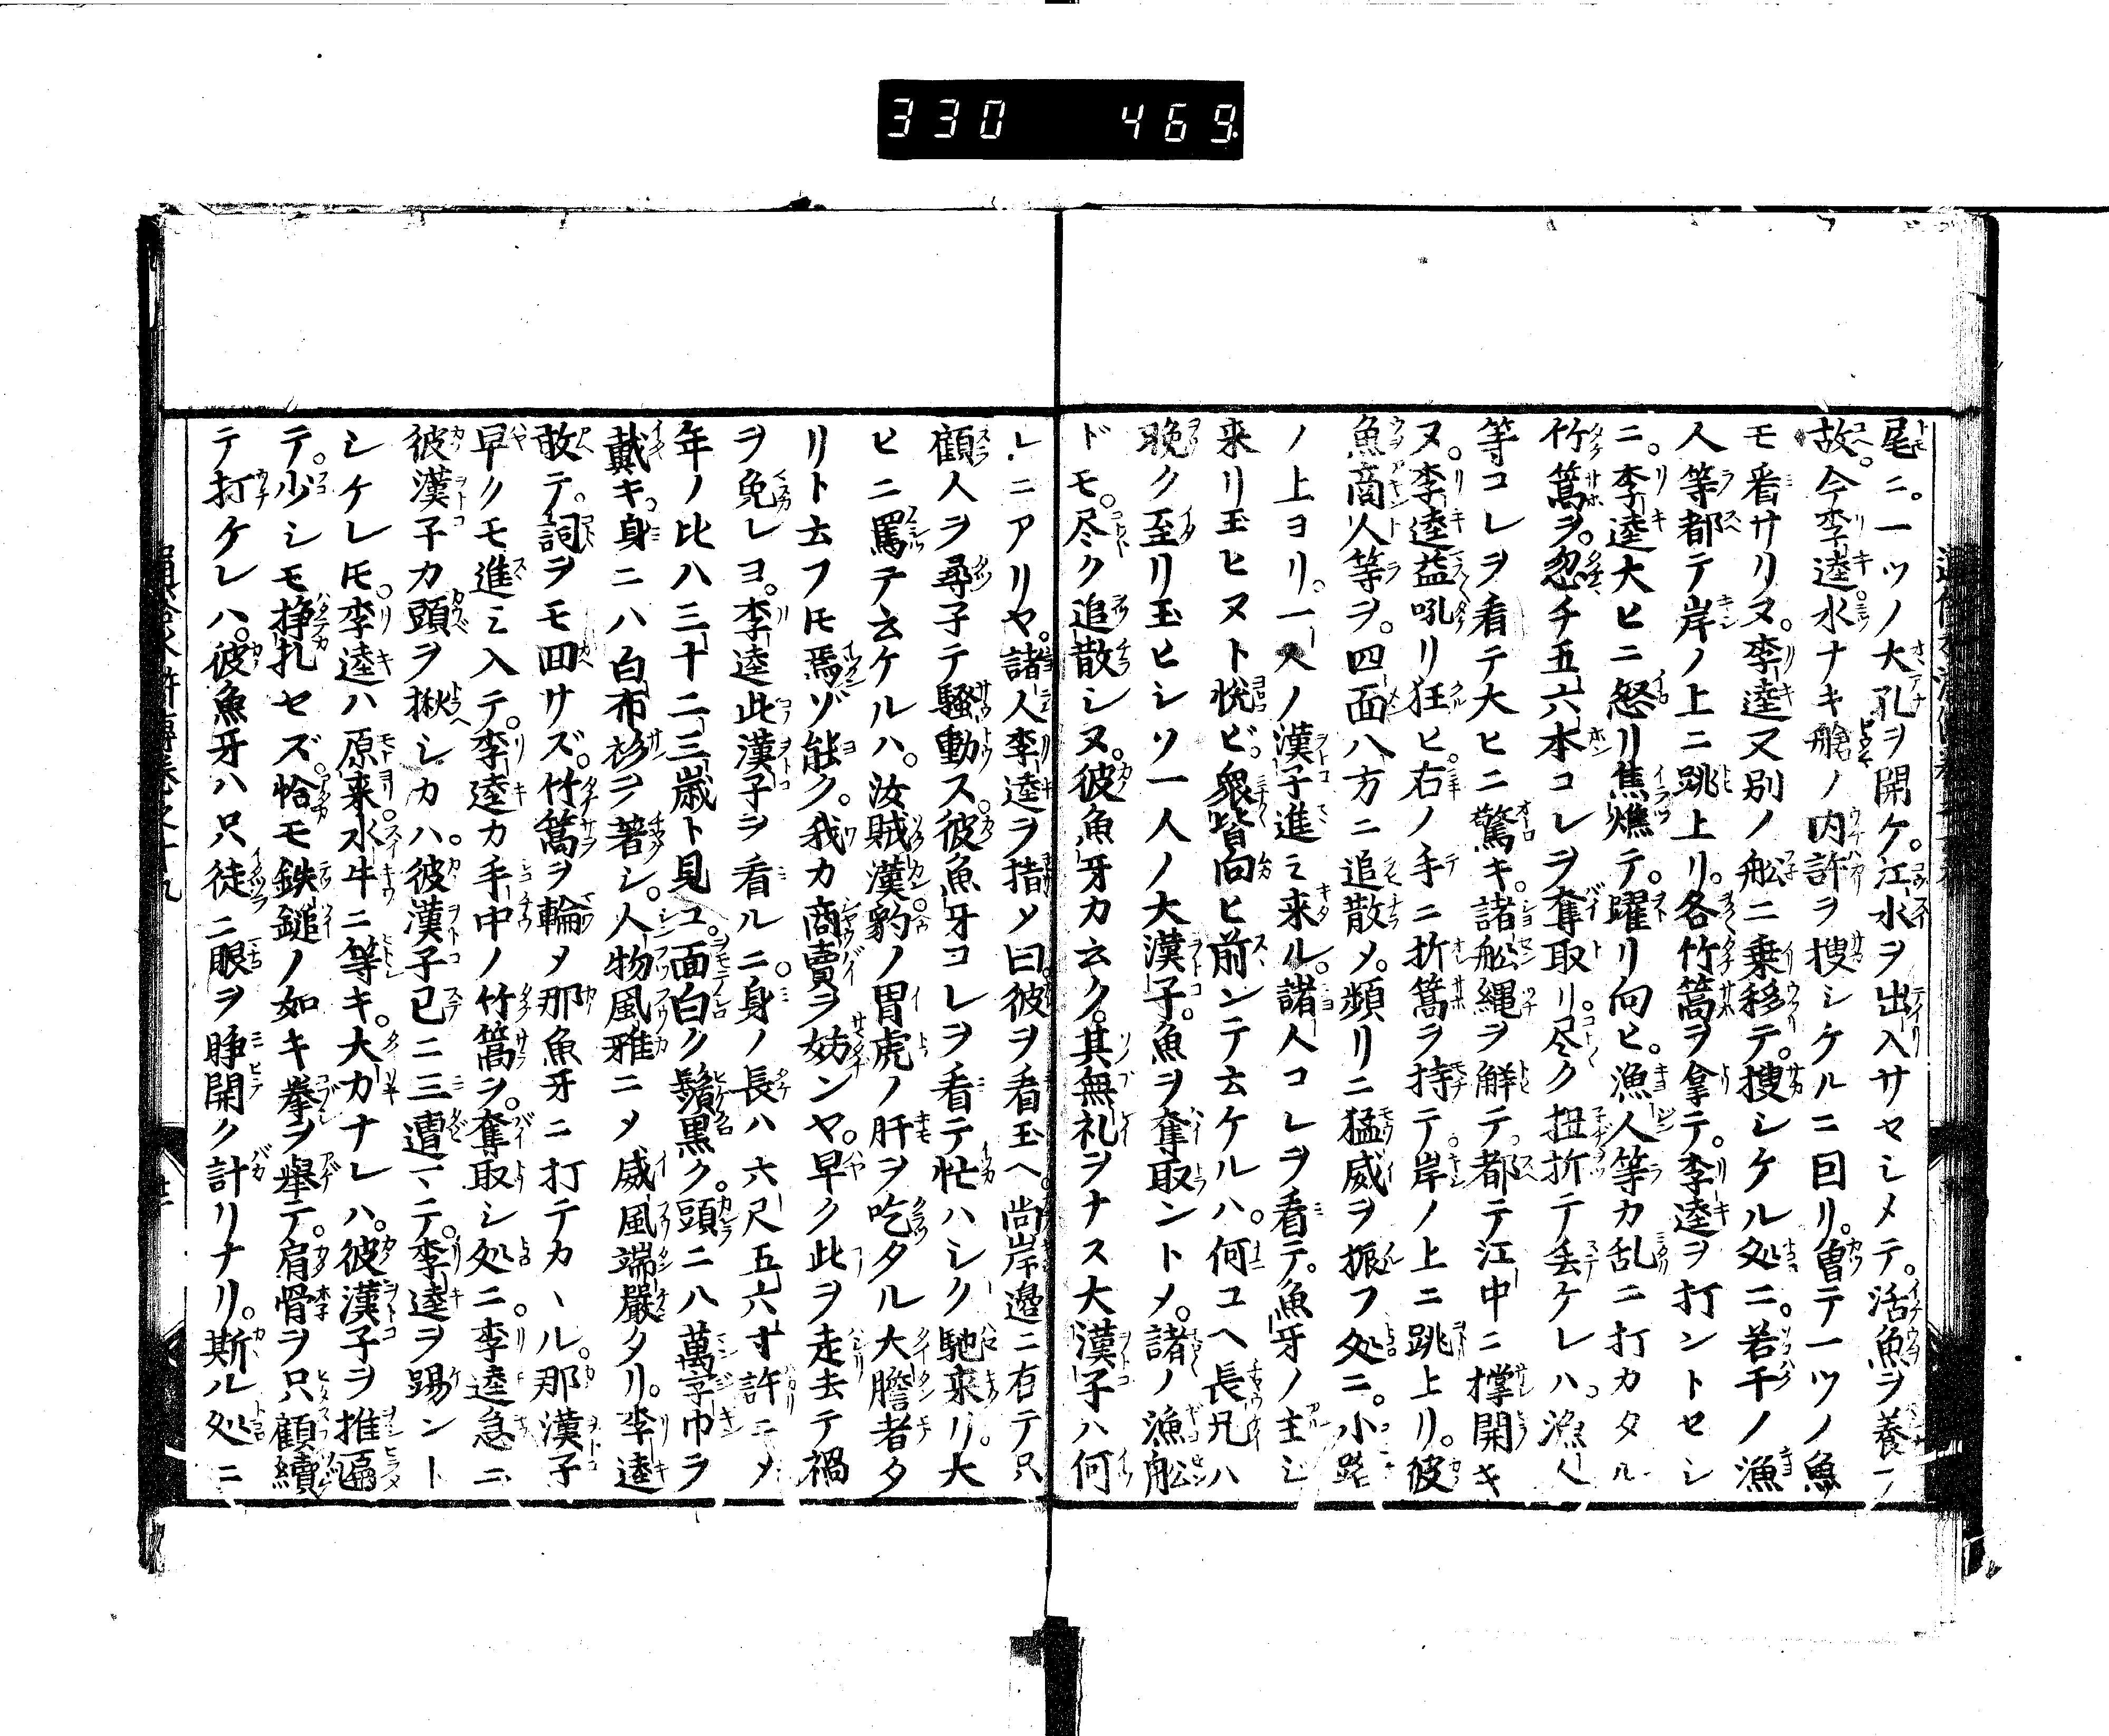 330 469
尾ニ。一ツノ大孔ヲ開ケ。江水ヲ出入サセシメテ。活魚ヲ養フ
故。今李逵。水ナキ艙ノ内許ヲ捜シケルニ曰リ。曽テ一ツノ魚
モ看サリヌ。李逵又別ノ舩ニ乗移テ。捜シケル処ニ。若干ノ漁
人等都テ岸ノ上ニ跳上リ。各竹篙ヲ拿テ。李逵ヲ打ントセシ
ニ。李逵大ヒニ怒リ焦燋テ。躍リ向ヒ。漁人等カ乱ニ打カタル
竹篙ヲ。忽チ五六本コレヲ奪取リ。尽ク扭折テ丢ケレハ。漁人
等コレヲ看テ大ヒニ驚キ。諸舩縄ヲ觧テ。都テ江中ニ撑開キ
ヌ。李逵益吼リ狂ヒ。右ノ手ニ折篙ヲ持テ。岸ノ上ニ跳上リ。彼
魚商人等ヲ。四面八方ニ追散メ。頻リニ猛威ヲ振フ処ニ。小路
ノ上ヨリ。一人ノ漢子進ミ来ル。諸人コレヲ看テ。魚牙ノ主ジ
来リ玉ヒヌト悦ビ。衆皆向ヒ前ンテ云ケルハ。何ユヘ長兄ハ
晩ク至リ玉ヒシソ一人ノ大漢子。魚ヲ奪取ントメ。諸ノ漁舩
ドモ。尽ク追散シヌ。彼魚牙カ云ク。其無礼ヲナス大漢子ハ何
レニアリヤ。諸人李逵ヲ指メ曰。彼ヲ看玉ヘ。尚岸邉ニ右テ只
顧人ヲ尋子テ騒動ス。彼魚牙コレヲ看テ忙ハシク馳来リ。大
ヒニ罵テ云ケルハ。汝賊漢。豹ノ胃虎ノ肝ヲ吃タル大膽者タ
リト云フ𪜈焉ゾ能ク。我カ商賣ヲ妨ンヤ。早ク此ヲ走去テ禍
ヲ免レヨ。李逵此漢子ヲ看ルニ。身ノ長ハ六尺五六寸許ニメ
年ノ比ハ三十二三歳ト見ユ。面白ク鬚黒ク。頭ニハ萬字巾ヲ
戴キ身ニハ白布衫ヲ著シ。人物風雅ニメ威風端嚴タリ。李逵
敢テ。詞ヲモ回サズ。竹篙ヲ輪メ那魚牙ニ打テカヽル。那漢子
早クモ進ミ入テ。李逵カ手中ノ竹篙ヲ。奪取シ処ニ。李逵急ニ
彼漢子カ頭ヲ揪シカハ。彼漢子已ニ三遭マテ。李逵ヲ踢ント
シケレ𪜈。李逵ハ原来水牛ニ等キ。大力ナレハ。彼漢子ヲ推區
テ。少シモ掙扎セズ。恰モ鉄鎚ノ如キ拳ヲ舉テ。肩骨ヲ只顧續
テ打ケレハ。彼魚牙ハ只徒ニ眼ヲ睜開ク計リナリ。斯ル処ニ